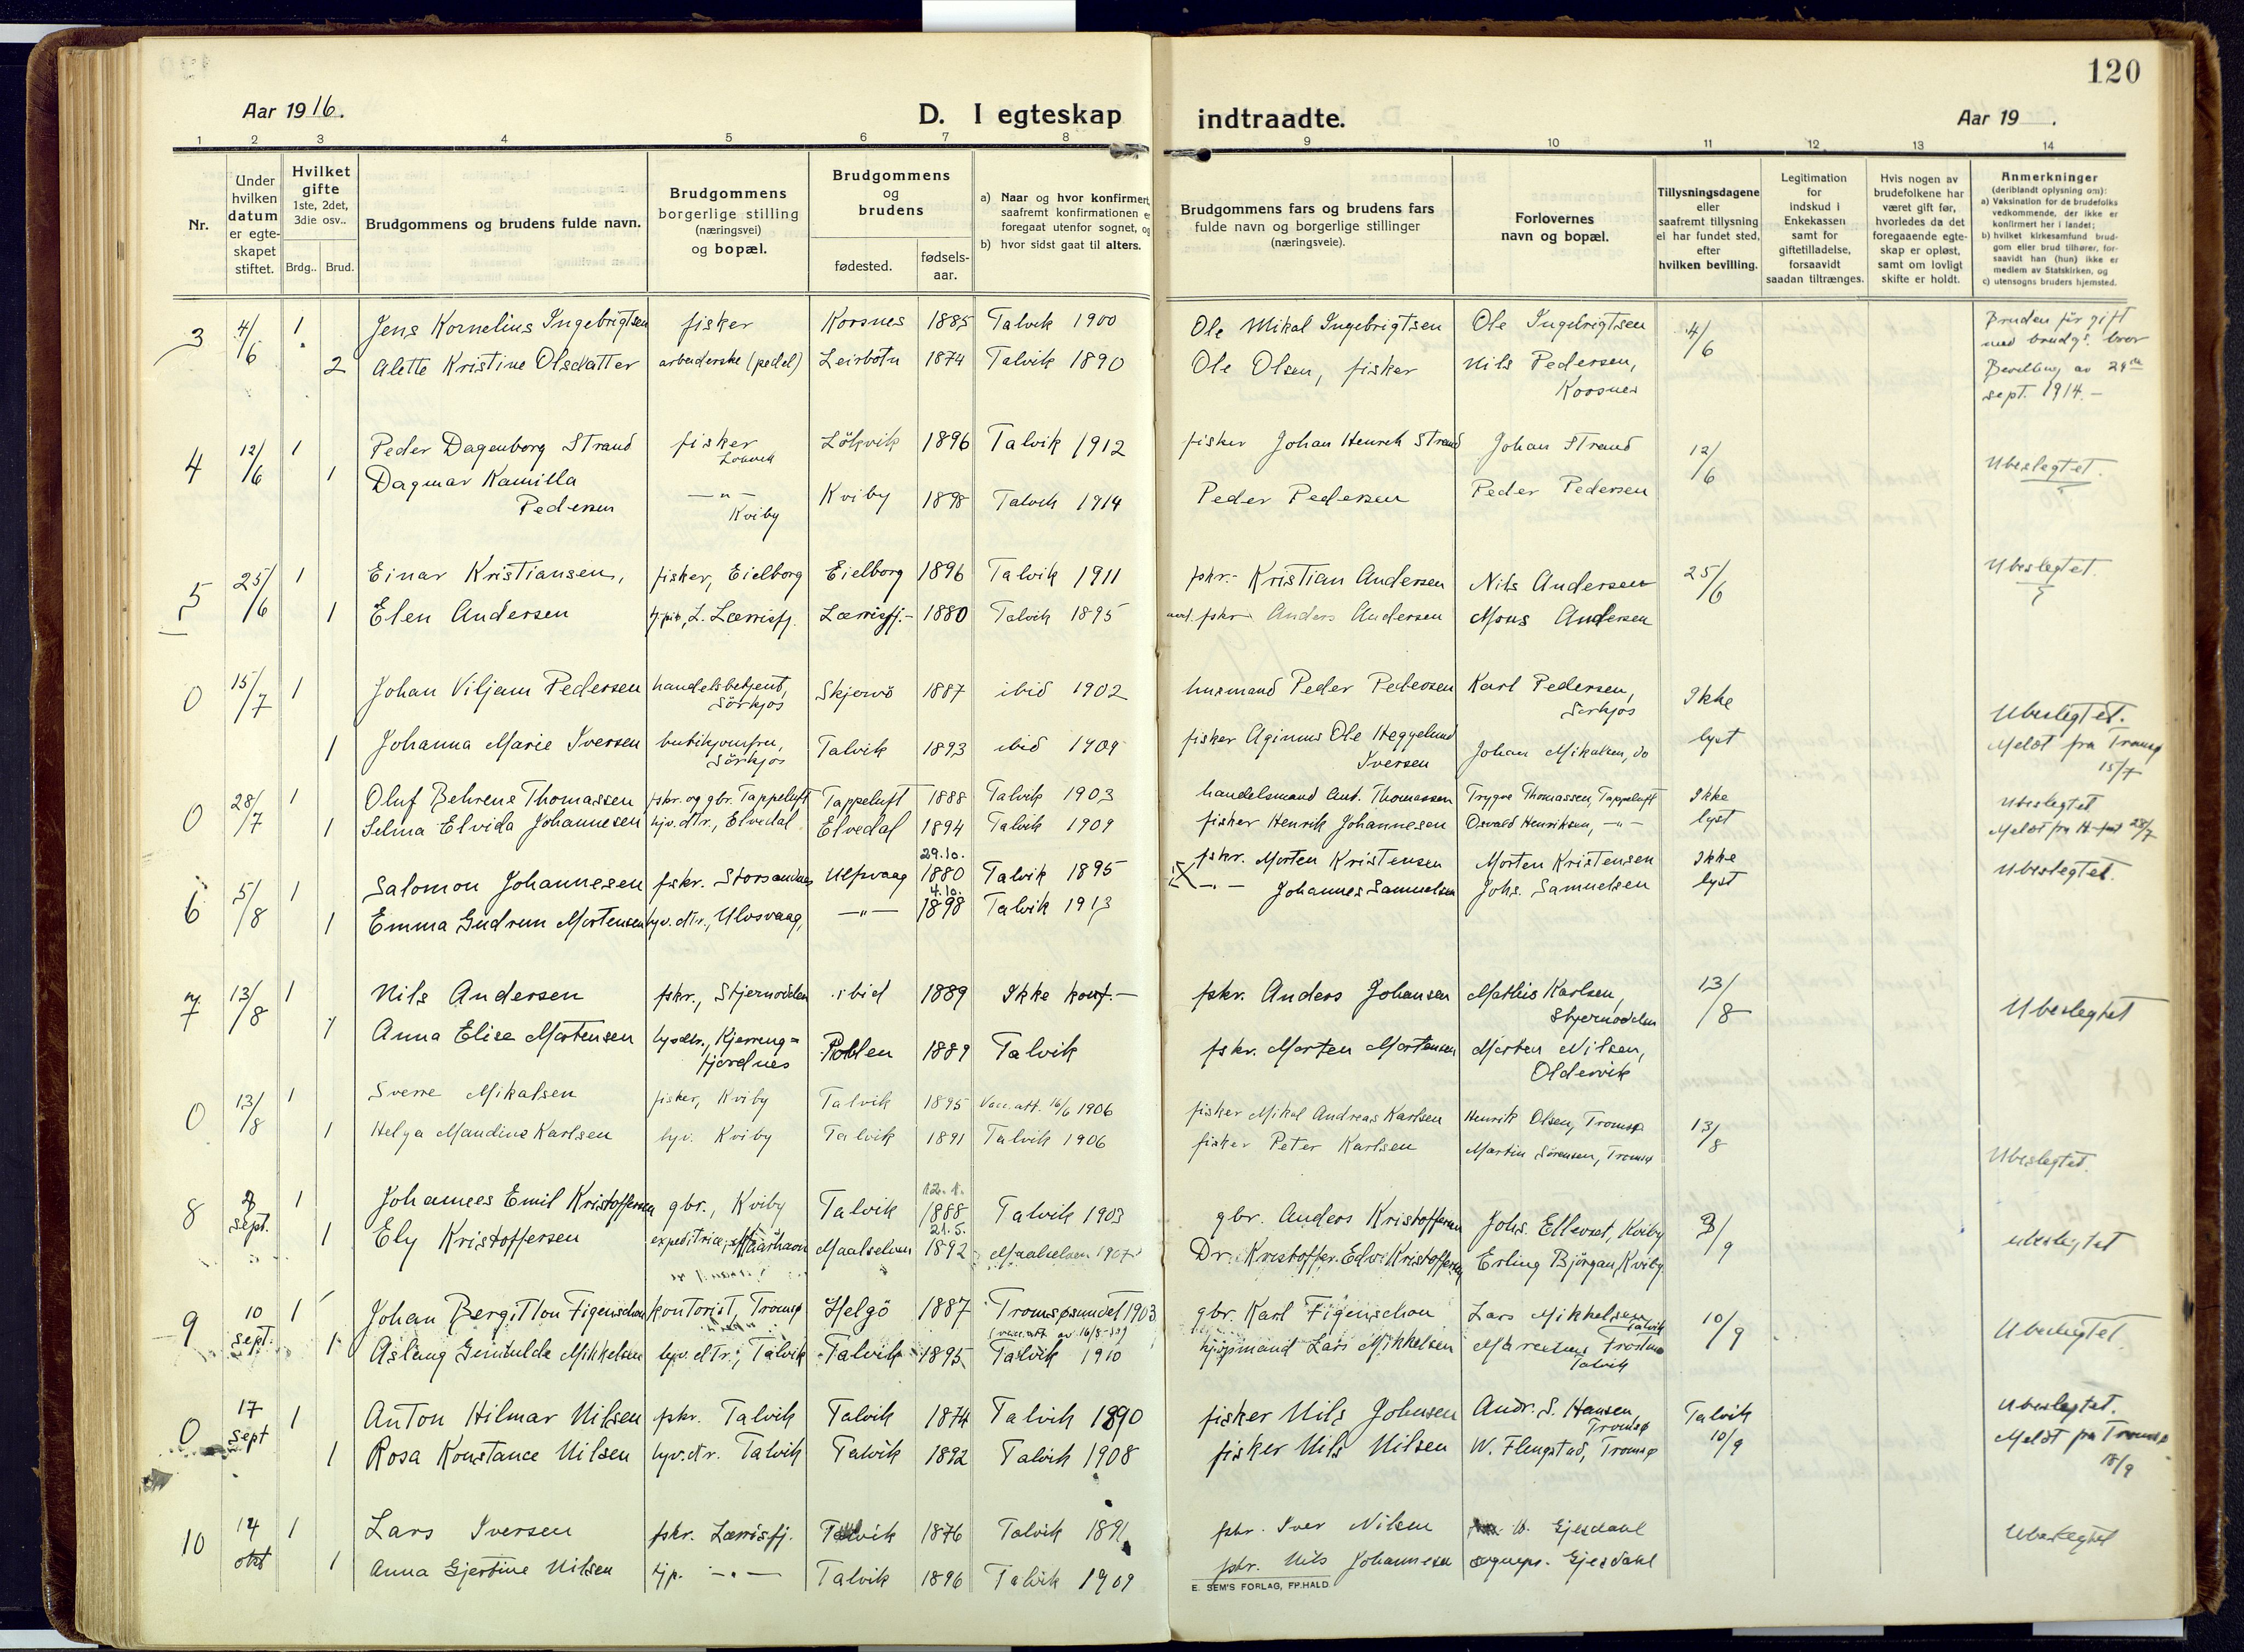 120
Aar 1916.
D. I egteskap
indtraadte.
Aar 19 .
1 2 3 4 5 6 7 8 9 10 11 12 13 14
Nr.
Under
hvilken
datum
er egte-
skapet
stiftet.
Hvilket
gifte
1ste, 2det,
3die osv..
Brdg.. Brud.
Brudgommens og brudens fulde navn.
Brudgommens
borgerlige stilling
(næringsvei)
og bopæl.
Brudgommens
og
brudens
fødested.
fødsels-
aar.
a) Naar og hvor konfirmert,
saafremt konfirmationen er
foregaat utenfor sognet, og
b) hvor sidst gaat til alters.
Brudgommens fars og brudens fars
fulde navn og borgerlige stillinger
(næringsveie).
Forlovernes
navn og bopæl.
Tillysningsdagene
eller
saafremt tillysning
ei har fundet sted,
efter
hvilken bevilling.
Legitimation
for
indskud i
Enkekassen
samt for
giftetilladelse,
forsaavidt
saadan tiltrænges.
Hvis nogen av
brudefolkene har
været gift før,
hvorledes da det
foregaaende egte-
skap er opløst,
samt om lovligt
skifte er holdt.
Anmerkninger
(deriblandt oplysning om):
a) Vaksination for de brudefolks
vedkommende, der ikke er
konfirmert her i landet;
b) hvilket kirkesamfund brud-
gom eller brud tilhører, for-
saavidt han (hun) ikke er
medlem av Statskirken, og
c) utensogns bruders hjemsted.
3 4/6 1 Jens Kornelius Ingebrigtsen fisker Korsnes 1885 Talvik 1900 Ole Mikal Ingebrigtsen Ole Ingebrigtsen 4/6 Bruden för gift
med brudgs. bror
2 Alette Kristine Olsdatter arbeiderske (pedel) Leirbotn 1874 Talvik 1890 Ole Olsen, fisker Nils Pedersen, Bevilling av 29
Korsnes sept. 1914.-
4 12/6 1 Peder Dagenborg Strand fisker Lökvik 1896 Talvik 1912 fisker Johan Henrik Strand Johan Strand 12/6 Ubeslegtet.
Lökvik
1 Dagmar Kamilla
Pedersen — " — Kviby 1898 Talvik 1914 Peder Pedersen Peder Pedersen
Kviby
5 25/6 1 Einar Kristiansen, fisker, Eielborg Eielborg 1896 Talvik 1911 fskr.- Kristian Andersen Nils Andersen 25/6 Ubeslegtet.
1 Elen Andersen L. Lærrisfj. Lærrisfj.- 1880 Talvik 1895 fskr. Anders Andersen Mons Andersen
0 15/7 1 Johan Viljam Pedersen handelsbetjent, Skjervö 1887 ibid 1902 husmand Peder Pedersen Karl Pedersen, Ikke Ubeslegtet.
Sörkjos Sørkjos
1 Johanna Marie Iversen butikjomfru, Talvik 1893 ibid 1909 fisker Aginus Ole Heggelund Johan Mikalsen, do lyst Meldt fra Tromsø
Sörkjos Iversen 15/7
0 28/7 1 Oluf Behrens Thomassen fskr. og gbr. Tappeluft Tappeluft 1888 Talvik 1903 handelsmand Ant. Thomassen Trygve Thomassen, Tappeluft Ikke Ubeslegtet
1 Selma Elvida Johannesen hjv. dtr., Elvedal Elvedal 1894 Talvik 1909 fisker Henrik Johannesen Osvald Henriksen, — " — lyst Meldt fra H-fest 28/7
29.10.
6 5/8 1 Salomon Johannesen fskr. Storsandnes Ulfsvaag 1880 Talvik 1895 fskr. Morten Kristensen Morten Kristensen Ikke Ubeslegtet.
4.10.
1 Emma Gudrun Mortensen hjv. dtr., Ulvsvaag, — " — 1898 Talvik 1913 — " — Johannes Samuelsen Johs. Samuelsen lyst
7 13/8 1 Nils Andersen fskr., Stjernodden ibid 1889 Ikke konf.- fskr. Anders Johansen Mathis Karlsen, 13/8 Ubeslegtet
Stjernodden
1 Anna Elise Mortensen Kjerring= Pollen 1889 Talvik fskr. Morten Mortensen Morten Nilsen,
fjordnes Oldervik
0 13/8 1 Sverre Mikalsen fisker, Kviby Talvik 1895 Vacc. att. 16/6 1906 fisker Mikal Andreas Karlsen Henrik Olsen, Tromsø 13/8
1 Helga Mandine Karlsen hjv. Kviby Talvik 1891 Talvik 1906 fisker Peter Karlsen Martin Sörensen, Tromsø Ubeslegtet.
8 3 sept. 1 Johannes Emil Kristoffersen gbr., Kviby Talvik 1888 Talvik 1903 gbr. Anders Kristoffersen Johs. Ellevset, Kviby 3/9
21.5.
1 Ely Kristoffersen expeditrice, Maalselven 1892 Maalselven 1907 Dr. Kristoffer Edv. Kristoffersen Erling Björgan, Kviby. ubeslegtet
9 10 sept. 1 Johan Bergitton Figenschou kontorist, Tromsø Helgö 1887 Tromsøsundet 1903 gbr. Karl Figenschou Lars Mikkelsen 10/9 Ubeslegtet.
Talvik
1 Aslaug Gunhilda Mikkelsen hjv. dtr., Talvik Talvik 1895 Talvik 1910 kjøpmand Lars Mikkelsen
Talvik
0 17 sept 1 Anton Hilmar Nilsen fskr. Talvik Talvik 1874 Talvik 1890 fisker Nils Johnsen Andr. S. Hansen, Talvik Ubeslegtet.
Tromsø 10/9
1 Rosa Konstance Nilsen hjv. dtr. Talvik Talvik 1892 Talvik 1908 fisker Nils Nilsen W. Flengstad, Tromsø Meldt fra Tromsø
18/9
10 14 okt 1 Lars Iversen fskr. Lærrisfj. Talvik 1876 Talvik 1891 fskr. Iver Nilsen Gjesdahl Ubeslegtet
1 Anna Gjertine Nilsen tjp. — " — Talvik 1896 Talvik 1909 fskr. Nils Johannesen sognepr. Gjesdahl
E. SEM'S FORLAG, FR.HALD